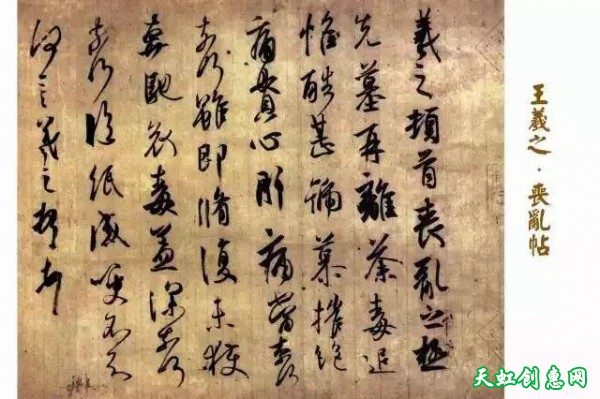 羲之頓首喪亂之極
先墓再離荼毒追
惟酷甚號慕摧絕
痛貫心肝痛當奈何
奈何雖即脩復未獲
奔馳哀毒益深奈何
奈何臨紙感哽不知
何言羲之頓首
王羲之·喪亂帖
天虹创惠网